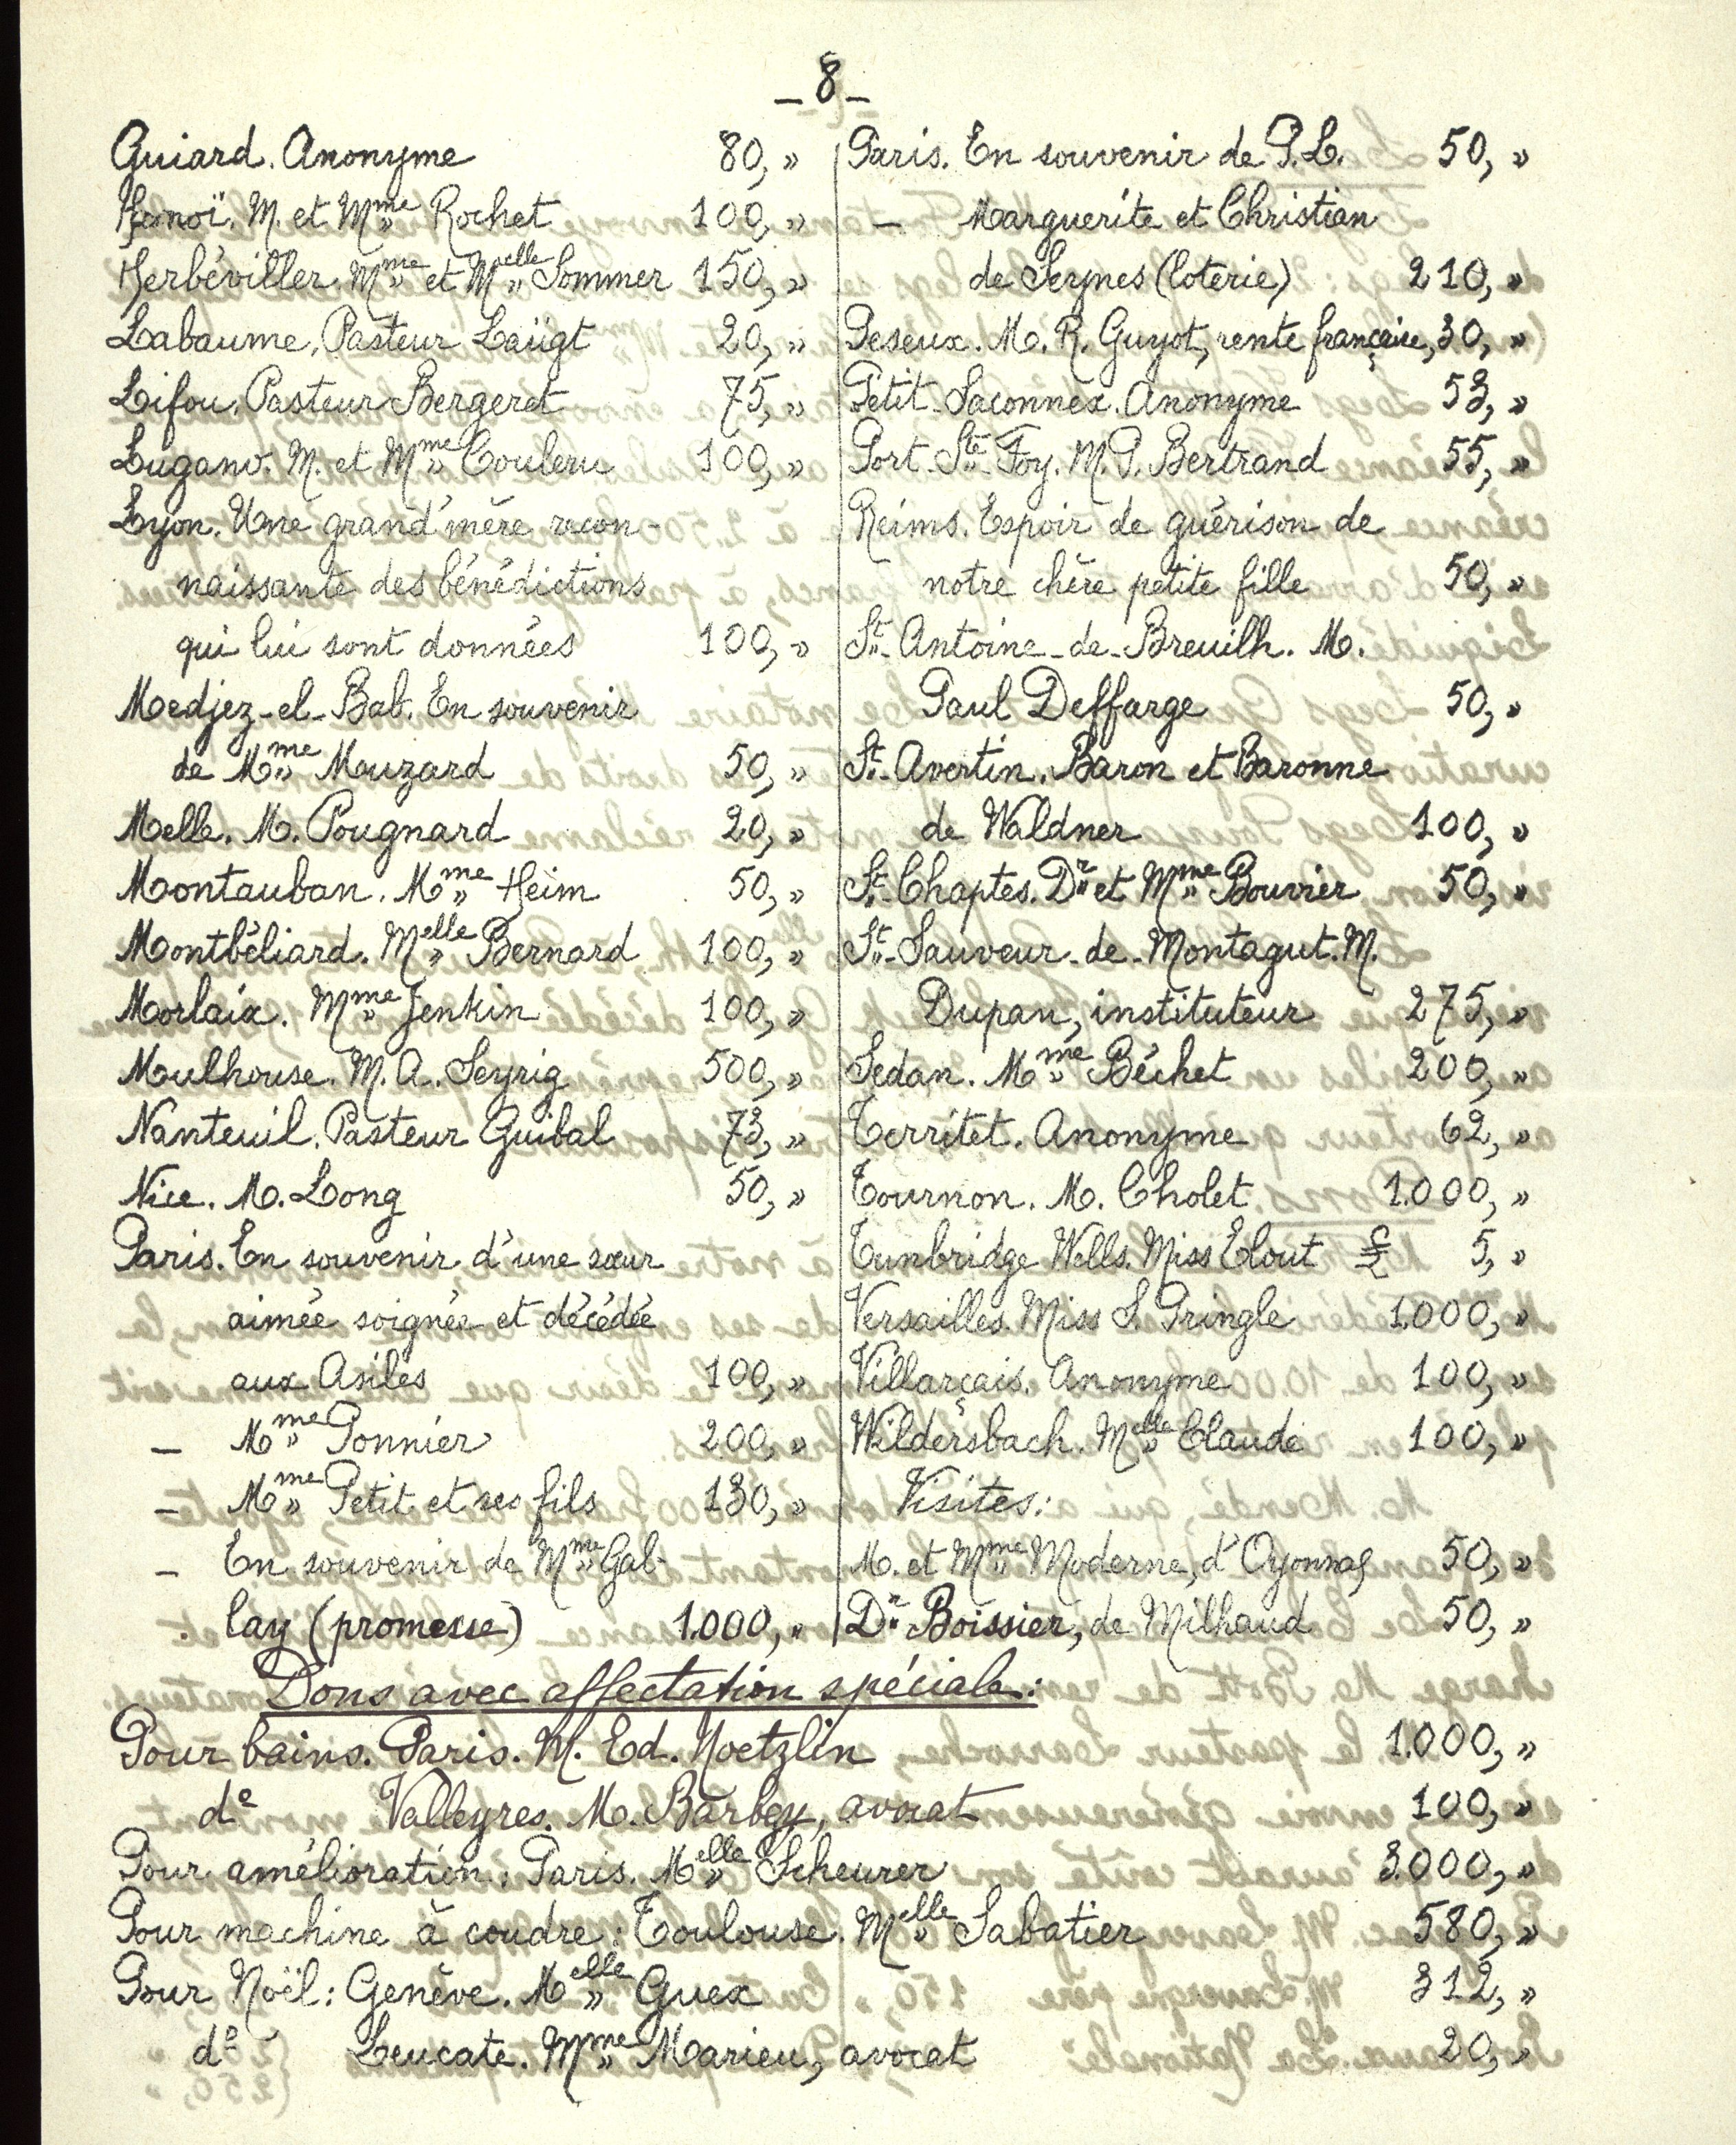 _ 8 _
Guiard. Anonyme 80, »
Hanoï. M. et Mme Rochet 100, »
Herbéviller. Mme et Melle Sommer 150, »
Labaume. Pasteur Laügt 20, »
Lifou. Pasteur Bergeret 75, »
Lugano. M. et Mme Couleru 100, »
Lyon. Une grand'mère recon-
naissante des bénédictions
qui lui sont données 100, »
Medjez-el-Bab. En souvenir
de Mme Mouzard 50, »
Melle. M. Pougnard 20, »
Montauban. Mme Heim 50, »
Montbéliard. Melle Bernard 100, »
Morlaix. Mme Jenkin 100, »
Mulhouse. M. A. Seyrig 500, »
Nanteuil. Pasteur Guibal 73, »
Nice. M. Long 50, »
Paris. En souvenir d'une sœur
aimée soignée et décédée
aux Asiles 100, »
_ Mme Ponnier 200, »
_ Mme Petit et ses fils 130, »
_ En souvenir de Mme Gal-
lay (promesse) 1.000, »
Paris. En souvenir de P.L. 50, »
_ Marguerite et Christian
de Seynes (loterie) 210, »
Peseux. M. R. Guyot, rente française, 30, »
Petit-Saconnex. Anonyme 53, »
Port-Ste-Foy. M. P. Bertrand 55, »
Reims. Espoir de guérison de
notre chère petite fille 50, »
St-Antoine-de-Breuilh. M.
Paul Deffarge 50, »
St-Avertin. Baron et Baronne
de Waldner 100, »
St-Chaptes. Dr et Mme Bouvier 50, »
St-Sauveur-de-Montagut. M.
Dupan, instituteur 275, »
Sedan. Mme Béchet 200, »
Territet. Anonyme 62, »
Tournon. M. Cholet 1.000, »
Tunbridge Wells. Miss Elout £ 5, »
Versailles. Miss S. Pringle 1.000, »
Villarçais. Anonyme 100, »
Wildersbach. Melle Claude 100, »
Visites:
M. et Mme Moderne, d'Oyonnax 50, »
Dr Boissier, de Milhaud 50, »
Dons avec affectation spéciale:
Pour bains. Paris. M. Ed. Noetzlin 1.000, »
do Valleyres. M. Barbey, avocat 100, »
Pour amélioration: Paris. Melle Scheurer 3.000, »
Pour machine à coudre: Toulouse. Melle Sabatier 580, »
Pour Noël: Genève. Melle Guex 312, »
do Leucate. Mme Marieu, avocat 20, »